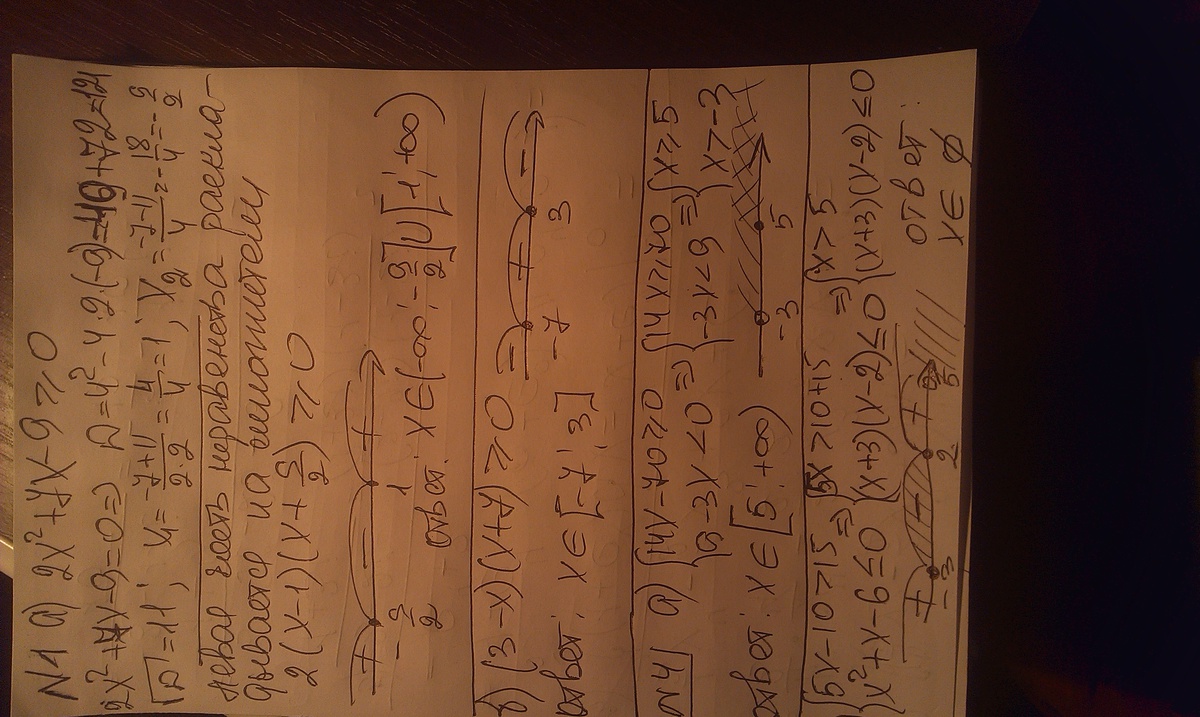 N1 а) 2x²+7x-9≥0
2x²+7x-9=0⇒ D=7²-4·2·(-9)=49+72=121
√D=11; x₁=(-7+11)/(2·2)=4/4=1; x₂=(-7-11)/4=-18/4=-9/2
левая часть неравенства раскла-
дывается на множители
2(x-1)(x+9/2)≥0
+ - +
-9/2 1
ответ: x∈(-∞;-9/2]∪[1;+∞)
б) (3-x)(x+7)≥0
- + -
-7 3
ответ: x∈[-7;3]
N4 а) {14x-70≥0 ⇒ {14x≥70 ⇒ {x≥5
{9-3x<0 {-3x<9 {x>-3
-3 5
ответ: x∈[5;+∞)
{5x-10>15 ⇒ {5x>10+15 ⇒ {x>5
{x²+x-6≤0 {(x+3)(x-2)≤0 {(x+3)(x-2)≤0
+ - +
-3 2 5
ответ:
x∈∅